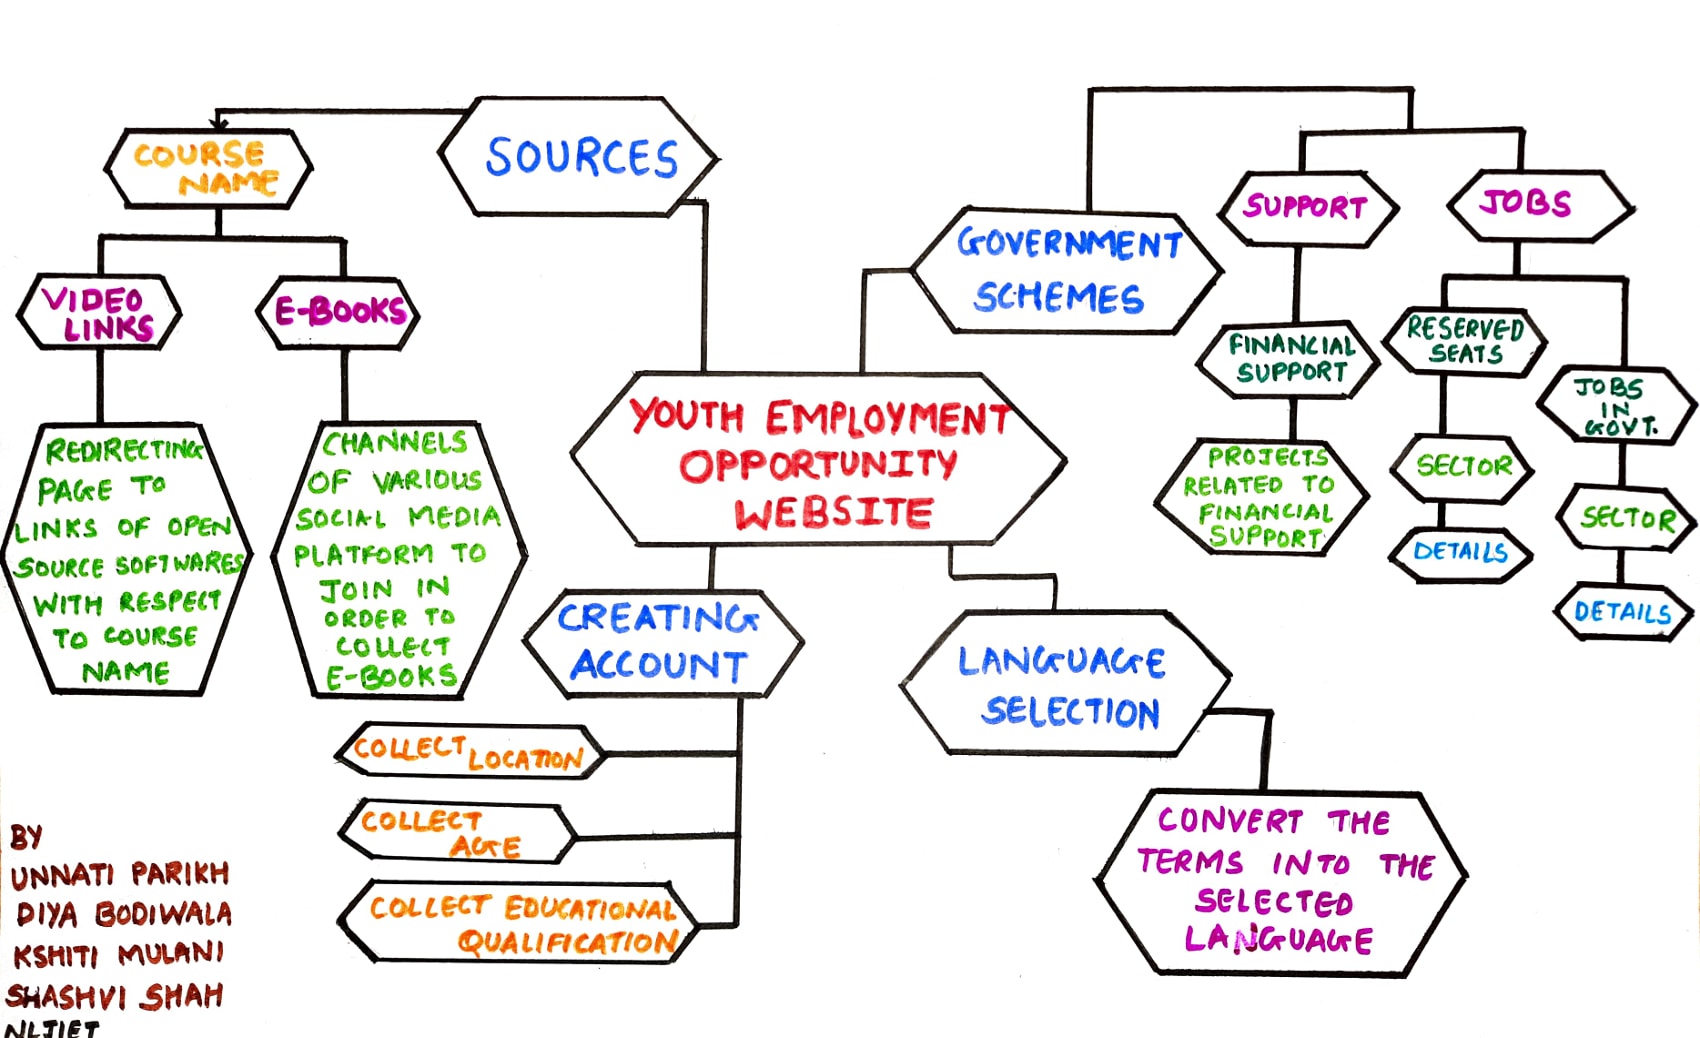 SOURCES
COURSE
NAME
VIDEO
LINKS
E-BOOKS
REDIRECTING
PAGE TO
LINKS OF OPEN
SOURCE SOFTWARES
WITH RESPECT
TO COURSE
NAME
CHANNELS
OF VARIOUS
SOCIAL MEDIA
PLATFORM TO
JOIN IN
ORDER TO
COLLECT
E-BOOKS
GOVERNMENT
SCHEMES
SUPPORT
JOBS
FINANCIAL
SUPPORT
PROJECTS
RELATED TO
FINANCIAL
SUPPORT
RESERVED
SEATS
SECTOR
DETAILS
JOBS
IN
GOVT.
SECTOR
DETAILS
YOUTH EMPLOYMENT
OPPORTUNITY
WEBSITE
CREATING
ACCOUNT
COLLECT LOCATION
COLLECT
AGE
COLLECT EDUCATIONAL
QUALIFICATION
LANGUAGE
SELECTION
CONVERT THE
TERMS INTO THE
SELECTED
LANGUAGE
BY
UNNATI PARIKH
DIYA BODIWALA
KSHITI MULANI
SHASHVI SHAH
NLJIET